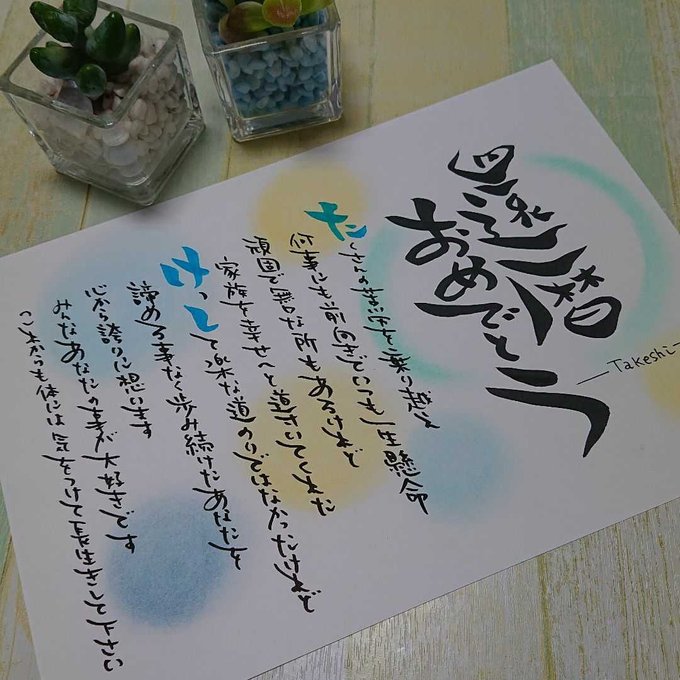 還暦
おめでとう
—Takeshi—
たくさんの苦労を乗り越え
何事にも前向きでいつも一生懸命
頑固で無口な所もあるけれど
家族を幸せへと導いてくれた
けっして楽な道のりではなかったけれど
諦める事なく歩み続けたあなたを
心から誇りに想います
みんなあなたの事が大好きです
これからも体には気をつけて長生きして下さい